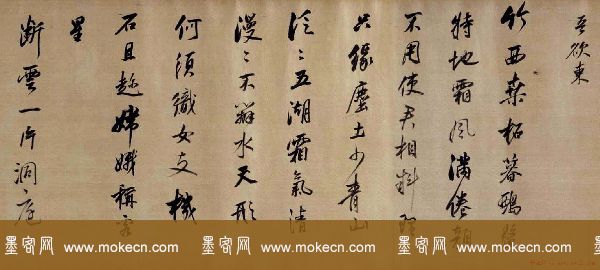 吾欲東
竹西桑柘暮鴉盤
特地霜風滿倦
不用使君相料理
只緣塵土少青山
泛〻五湖霜氣清
漫〻不辨水天形
何須織女支機
石且趁嫦娥稱客
星
断雲一片洞庭
墨客网 www.mokecn.com 墨客网 www.mokecn.com 墨客网 www.mokecn.com 墨客网